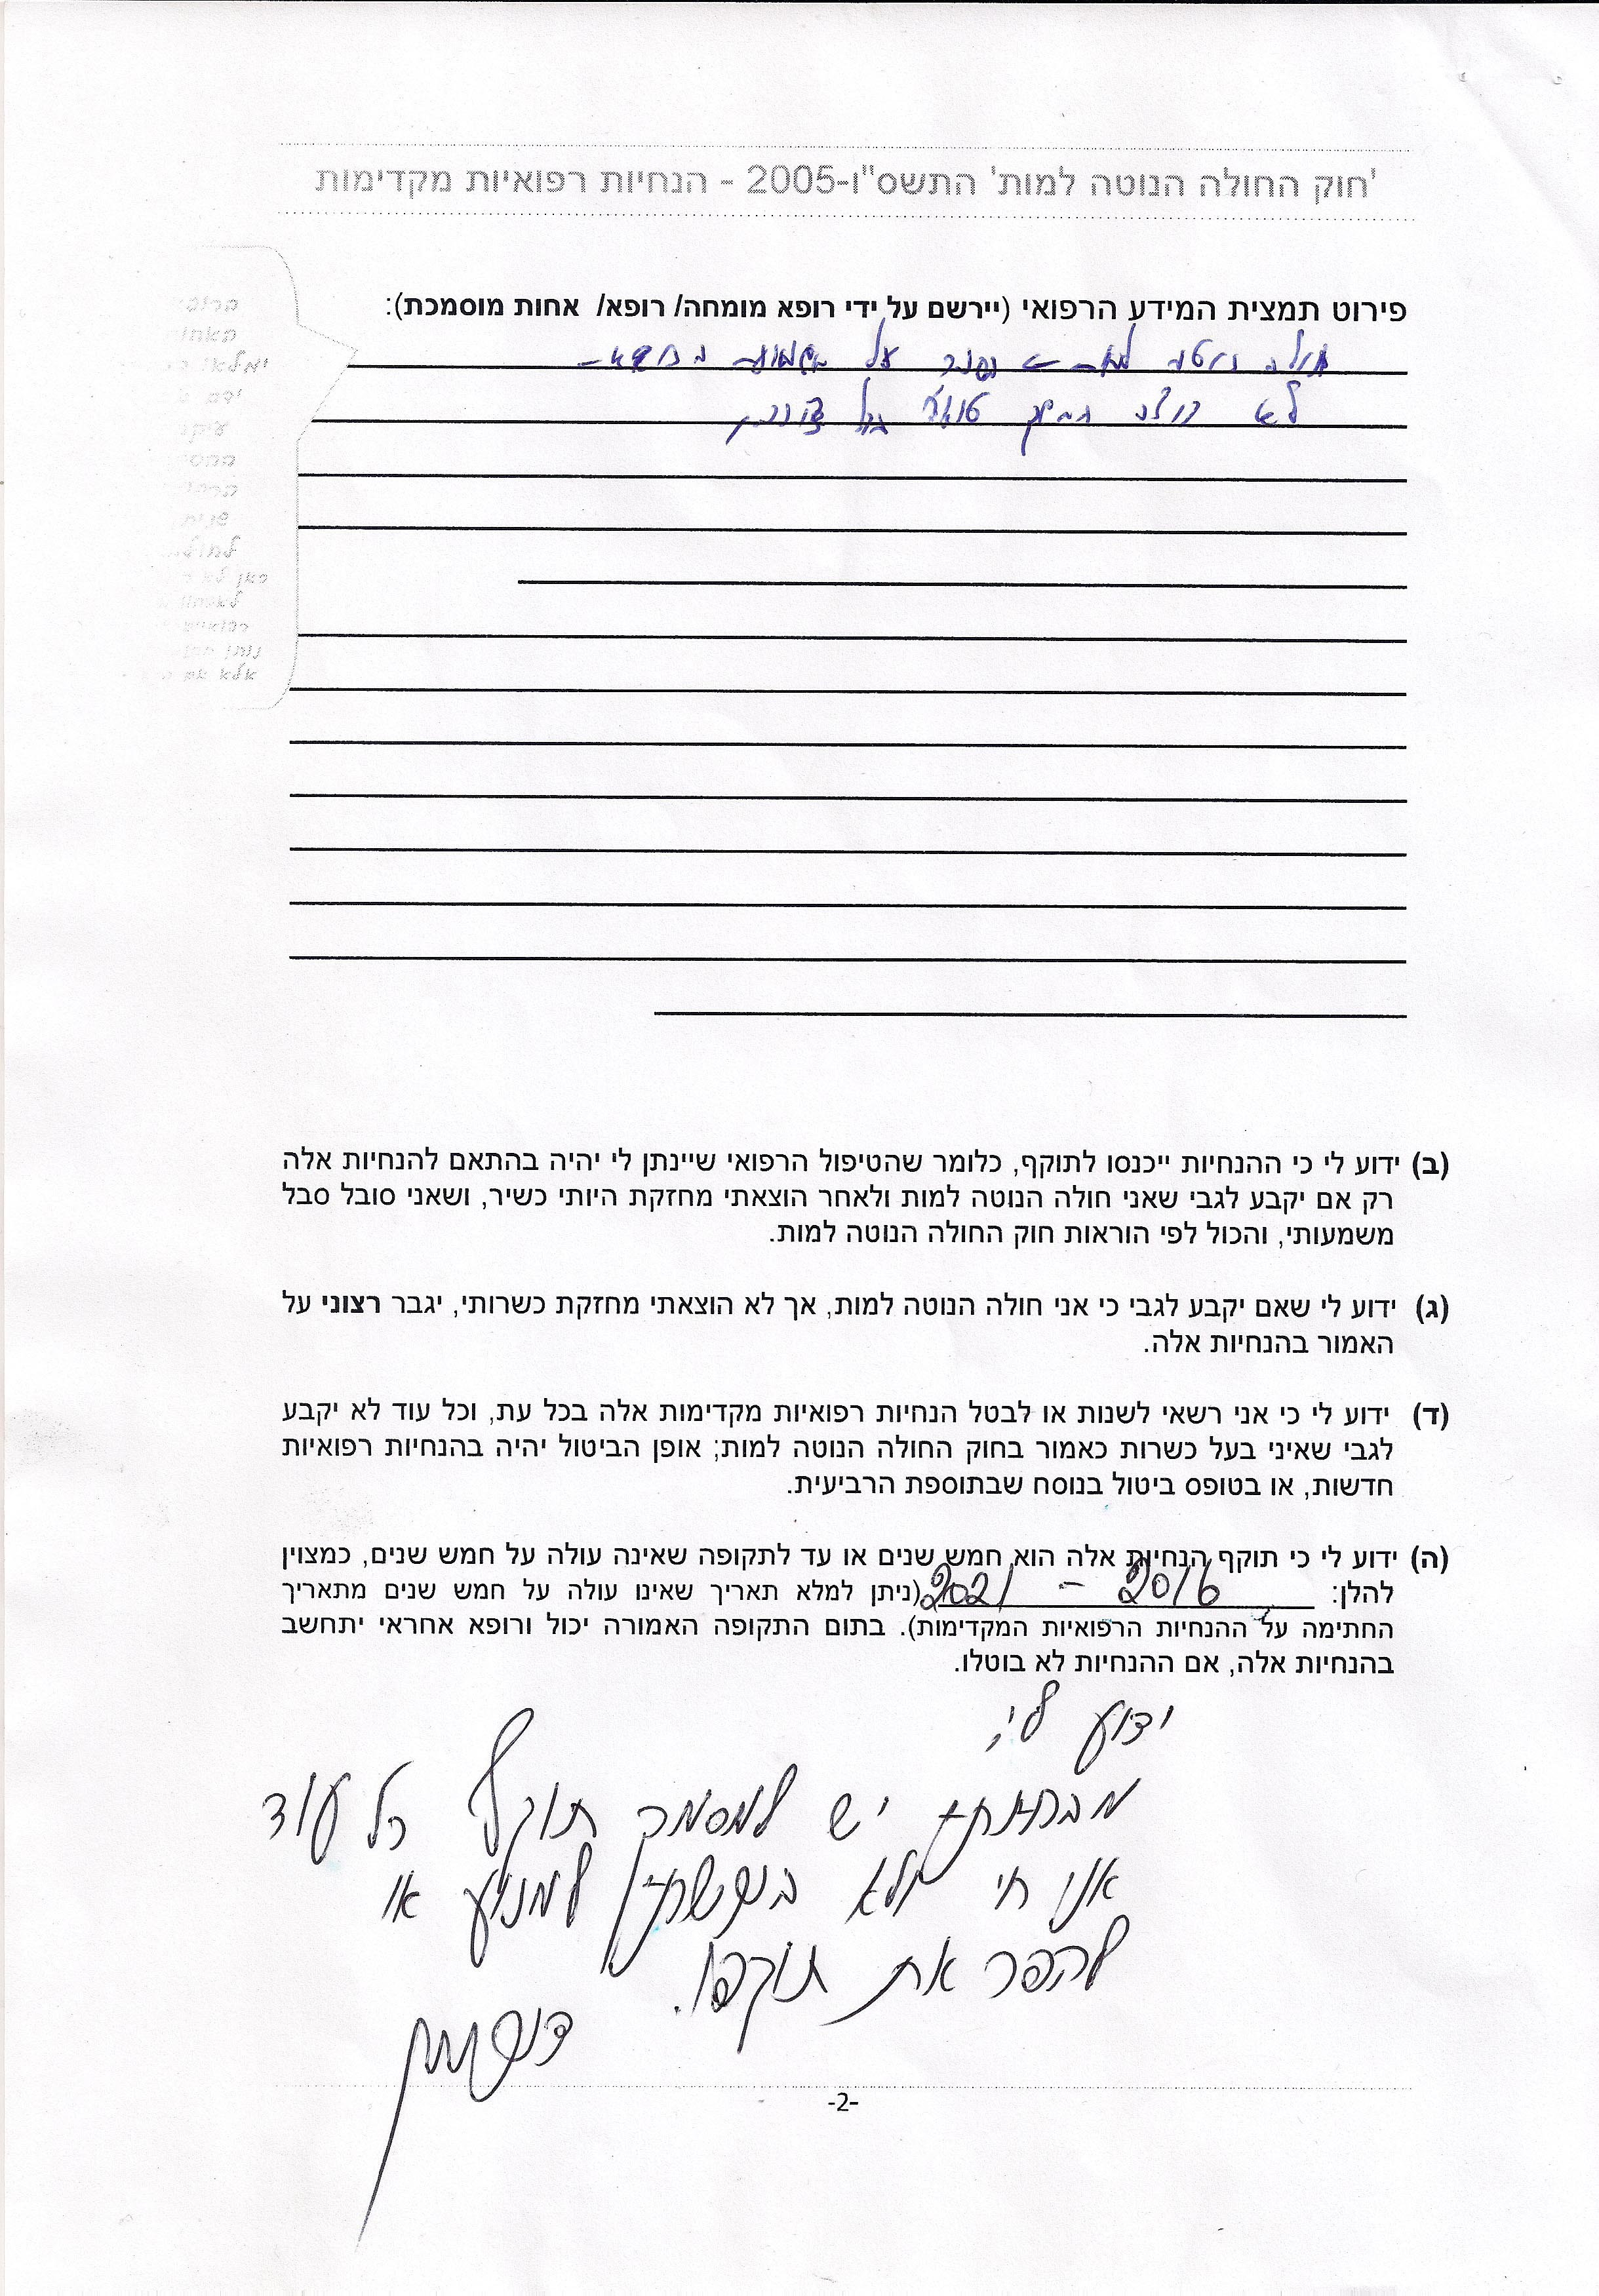 'חוק החולה הנוטה למות' התשס"ו-2005 - הנחיות רפואיות מקדימות
פירוט תמצית המידע הרפואי (יירשם על ידי רופא מומחה/ רופא/ אחות מוסמכת):
חולה נוטה למות הוסבר על משמעות
לא רוצה
כאן לא
נותן
אלא אם
(ב) ידוע לי כי ההנחיות ייכנסו לתוקף, כלומר שהטיפול הרפואי שיינתן לי יהיה בהתאם להנחיות אלה
רק אם יקבע לגבי שאני חולה הנוטה למות ולאחר הוצאתי מחזקת היותי כשיר, ושאני סובל סבל
משמעותי, והכול לפי הוראות חוק החולה הנוטה למות.
(ג) ידוע לי שאם יקבע לגבי כי אני חולה הנוטה למות, אך לא הוצאתי מחזקת כשרותי, יגבר רצוני על
האמור בהנחיות אלה.
(ד) ידוע לי כי אני רשאי לשנות או לבטל הנחיות רפואיות מקדימות אלה בכל עת, וכל עוד לא יקבע
לגבי שאיני בעל כשרות כאמור בחוק החולה הנוטה למות; אופן הביטול יהיה בהנחיות רפואיות
חדשות, או בטופס ביטול בנוסח שבתוספת הרביעית.
(ה) ידוע לי כי תוקף הנחיות אלה הוא חמש שנים או עד לתקופה שאינה עולה על חמש שנים, כמצוין
להלן: 2016 - 2021 (ניתן למלא תאריך שאינו עולה על חמש שנים מתאריך
החתימה על ההנחיות הרפואיות המקדימות). בתום התקופה האמורה יכול ורופא אחראי יתחשב
בהנחיות אלה, אם ההנחיות לא בוטלו.
ידוע לי,
מבחינתי יש למסמך תוקף כל עוד
אני חי ולא למנוע או
להפר את תוקפו.
-2-